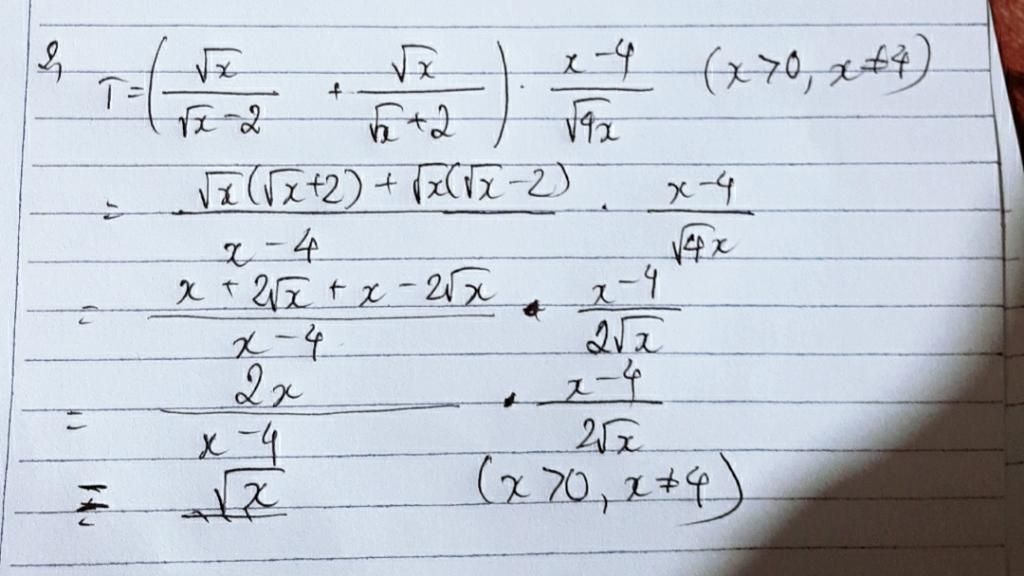 2, T = (√x/(√x - 2) + √x/(√x + 2)) · (x - 4)/√4x (x > 0, x ≠ 4)
= (√x(√x + 2) + √x(√x - 2))/(x - 4) · (x - 4)/√4x
= (x + 2√x + x - 2√x)/(x - 4) · (x - 4)/(2√x)
= 2x/(x - 4) · (x - 4)/(2√x)
= √x (x > 0, x ≠ 4)